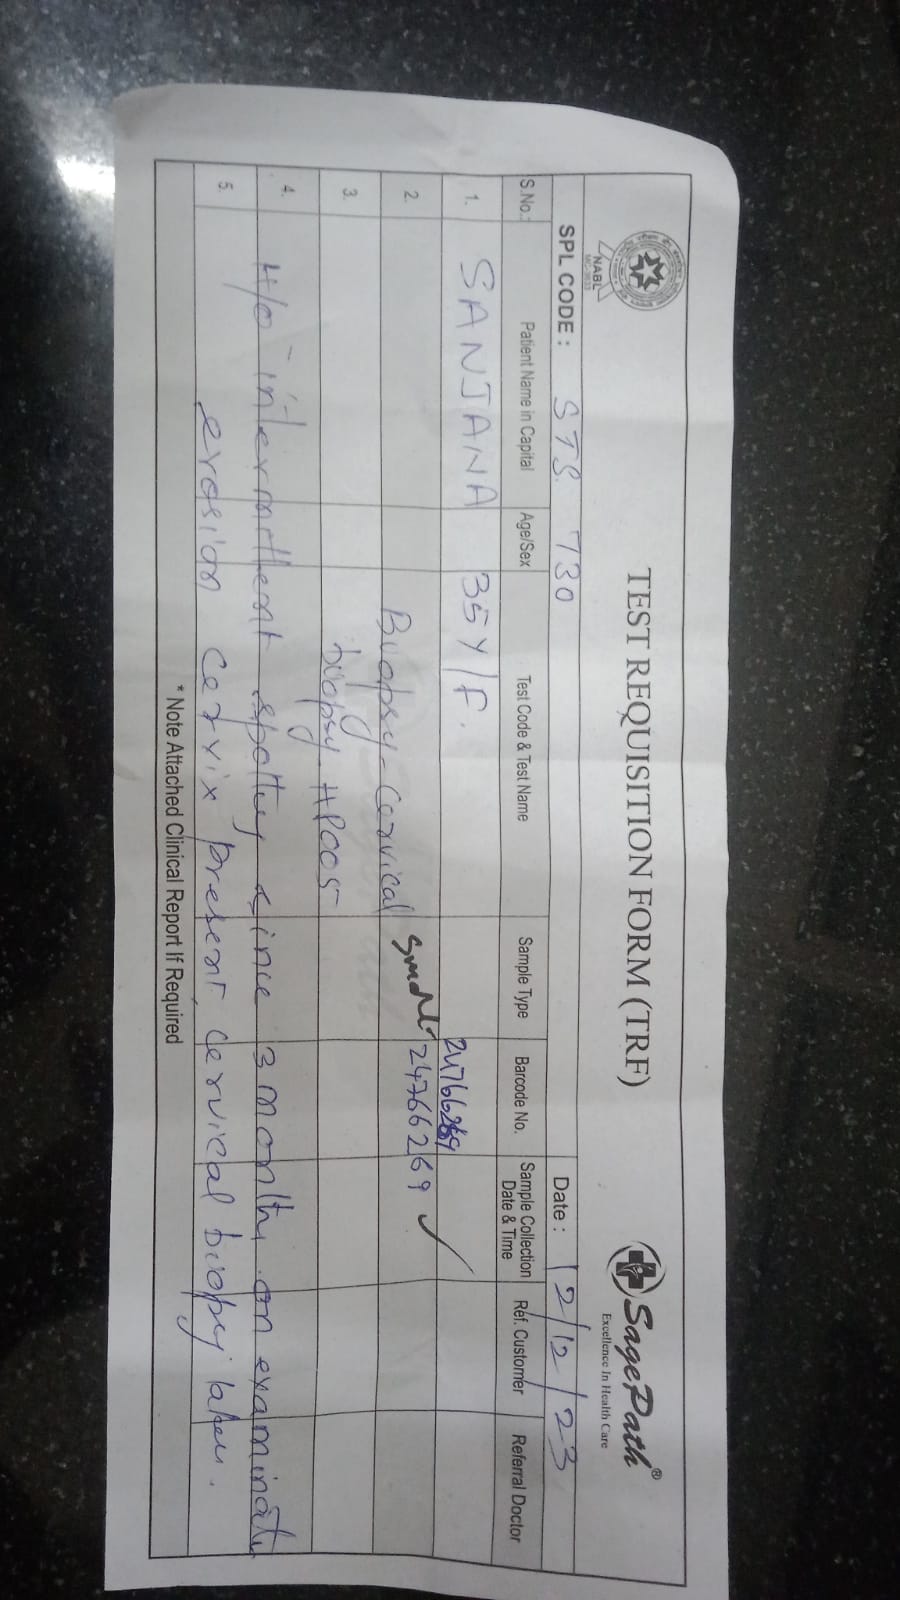 TEST REQUISITION FORM (TRF)
NABL
SagePath®
Excellence In Health Care
SPL CODE : STS 730 Date : 12/12/23
S.No.: Patient Name in Capital Age/Sex Test Code & Test Name Sample Type Barcode No. Sample Collection Date & Time Ref. Customer Referral Doctor
1. SANJANA 35Y/F. 24766269
2. Biopsy - Cervical Small 24766269 ✓
3. biopsy. HP005
4. H/O - intermittent spotting since 3 months. on examination
5. erosion cervix present, cervical biopsy taken.
* Note Attached Clinical Report If Required